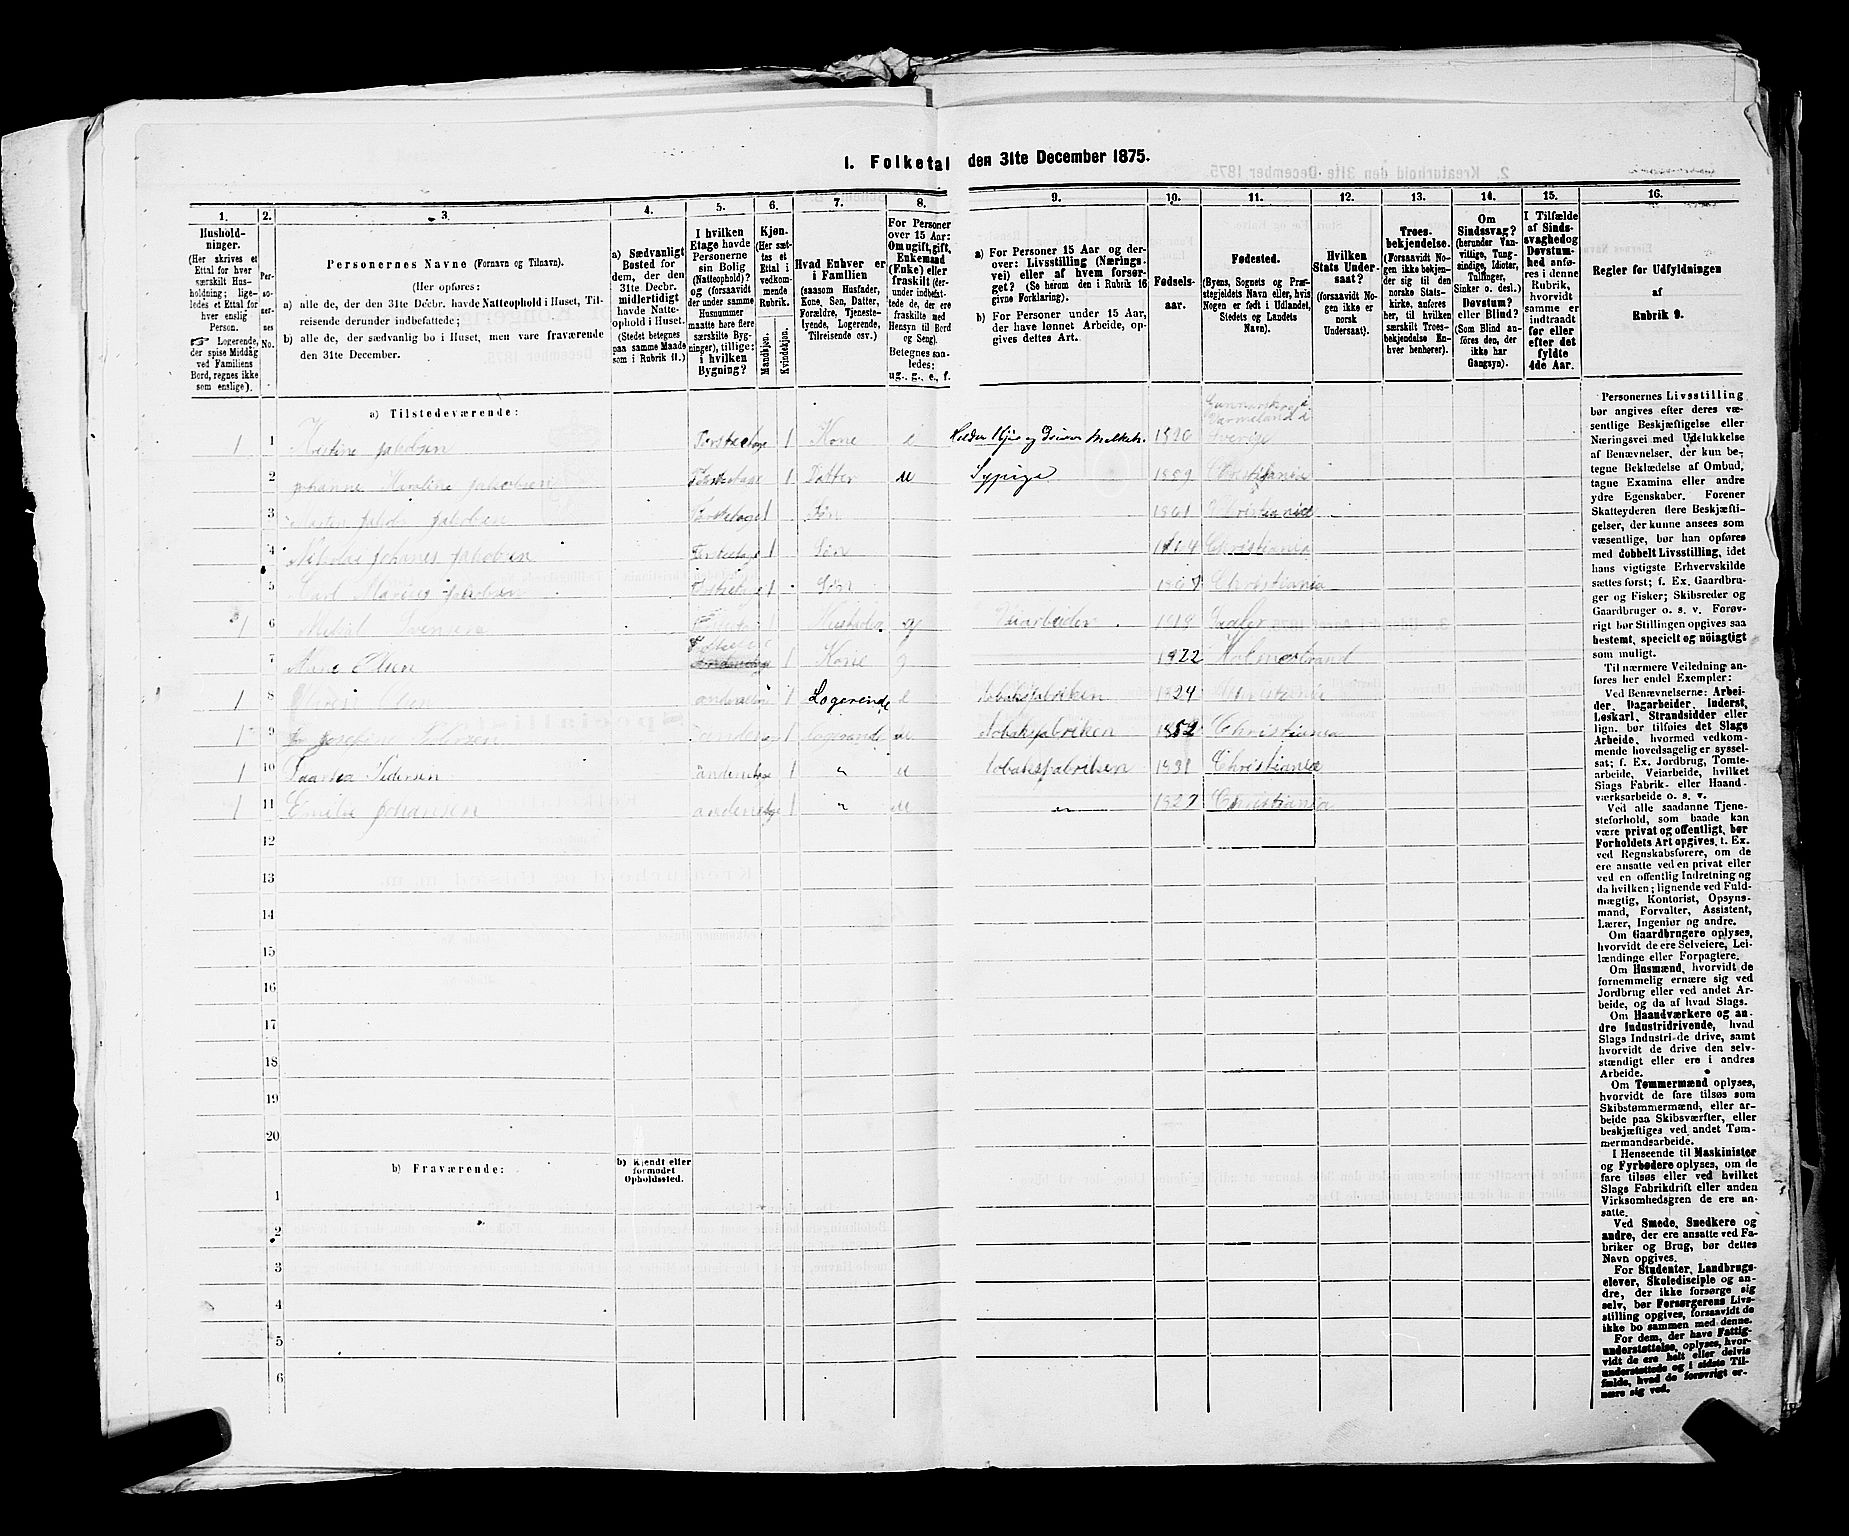 1. Folketal den 31te December 1875.
1. 2. 3. 4. 5. 6. 7. 8. 9. 10. 11. 12. 13. 14. 15. 16.
Hushold-
ninger.
(Her skrives et
Ettal for hver
særskilt Hus-
holdning; lige-
ledes et Ettal for
hver enslig
Person.
☞ Logerende,
der spise Middag
ved Familiens
Bord, regnes ikke
som enslige).
Per-
so-
ner-
nes
No.
Personernes Navne (Fornavn og Tilnavn).
(Her opføres:
a) alle de, der den 31te Decbr. havde Natteophold i Huset, Til-
reisende derunder indbefattede;
b) alle de, der sædvanlig bo i Huset, men vare fraværende
den 31te December.
a) Sædvanligt
Bosted for
dem, der den
31te Decbr.
midlertidigt
havde Natte-
ophold i Huset.
(Stedet betegnes
paa samme Maade
som i Rubrik 11.)
I hvilken
Etage havde
Personerne
sin Bolig
(Natteophold)?
og (forsaavidt
der under samme
Husnummer
maatte høre flere
særskilte Byg-
ninger), tillige:
i hvilken
Bygning?
Kjøn.
(Her sæt-
tes et
Ettal i
vedkom-
mende
Rubrik.
Mandkjøn.
Kvindekjøn.
Hvad Enhver er
i Familien
(saasom Husfader,
Kone, Søn, Datter,
Forældre, Tjeneste-
tyende, Logerende,
Tilreisende osv.)
For Personer
over 15 Aar:
Om ugift, gift,
Enkemand
(Enke) eller
fraskilt (der-
under indbefat-
tede de, der ere
fraskilte med
Hensyn til Bord
og Seng).
Betegnes saa-
ledes:
ug., g., e., f.
a) For Personer 15 Aar og der-
over: Livsstilling (Nærings-
vei) eller af hvem forsør-
get? (Se herom den i Rubrik 16
givne Forklaring).
b) For Personer under 15 Aar,
der have lønnet Arbeide, op-
gives dettes Art.
Fødsels-
aar.
Fødested.
(Byens, Sognets og Præ-
stegjeldets Navn eller, hvis
Nogen er født i Udlandet,
Stedets og Landets
Navn).
Hvilken
Stats Under-
saat?
(forsaavidt No-
gen ikke er
norsk
Undersaat).
Troes-
bekjendelse.
(Forsaavidt No-
gen ikke bekjen-
der sig til den
norske Stats-
kirke, anføres
her, til hvilken
særskilt Troes-
bekjendelse En-
hver henhører).
Om
Sindssvag?
(herunder Van-
vittige, Tung-
sindige, Idioter,
Tullinger,
Sinker o. desl.)
Døvstum?
eller Blind?
(Som Blind an-
føres den, der
ikke har
Gangsyn).
I Tilfælde
af Sinds-
svaghed og
Døvstum-
hed anfø-
res i denne
Rubrik,
hvorvidt
samme er
indtraadt
før eller
efter det
fyldte
4de Aar.
Regler for Udfyldningen
af
Rubrik 9.
a) Tilstedeværende:
1 1 Kristine Jakobsen Førsteetage 1 Kone e 1820 Sverig
2 Johanne Karoline Jakobsen 1 Datter u Sypige 1859 Christiania
3 Jakobsen 1 Søn 1861 Christiania
4 Nikolai Johanes Jakobsen 1 Søn Christiania
5 Karl Marius Jakobsen 1 Søn Christiania
1 6 Svensen 1 Husfader g Veiarbeider
7 Anne Olsen 1 Kone g 1822 Holmestrand
1 8 Olsen andenetage 1 Logerende e tobaksfabriken 1824 Christiania
1 9 Josefine 1 Logerende u tobaksfabriken 1852 Christiania
1 10 Pedersen andenetage 1 " u tobaksfabriken 1831 Christiania
1 11 Emilie Johansen andenetage 1 " u " 1827 Christiania
12
13
14
15
16
17
18
19
20
b) Fraværende:
b) Kjendt eller
formodet
Opholdssted.
1
2
3
4
5
6
Personernes Livsstilling
bør angives efter deres væ-
sentlige Beskjæftigelse eller
Næringsvei med Udelukkelse
af Benævnelser, der kun be-
tegne Beklædelse af Ombud,
tagne Examina eller andre
ydre Egenskaber. Forener
Skatteyderen flere Beskjæfti-
gelser, der kunne ansees som
væsentlige, bør han opføres
med dobbelt Livsstilling, idet
hans vigtigste Erhvervskilde
sættes først; f. Ex. Gaardbru-
ger og Fisker; Skibsreder og
Gaardbruger o. s. v. Forøv-
rigt bør Stillingen opgives saa
bestemt, specielt og nøiagtigt
som muligt.
Til nærmere Veiledning an-
føres her endel Exempler:
Ved Benævnelserne: Arbei-
der, Dagarbeider, Inderst,
Løskarl, Strandsidder eller
lign. bør tilføies det Slags
Arbeide, hvormed vedkom-
mende hovedsagelig er syssel-
sat; f. Ex. Jordbrug, Tomte-
arbeide, Veiarbeide, hvilket
Slags Fabrik- eller Haand-
værksarbeide o. s. v.
Ved alle saadanne Tjene-
steforhold, som baade kan
være privat og offentligt, bør
Forholdets Art opgives, t. Ex.
ved Regnskabsførere, om de
ere ansatte ved en privat eller
ved en offentlig Indretning og
da hvilken; lignende ved Fuld-
mægtig, Kontorist, Opsyns-
mand, Forvalter, Assistent,
Lærer, Ingeniør og andre.
Om Gaardbrugere oplyses,
hvorvidt de ere Selveiere, Lei-
lændinge eller Forpagtere.
Om Husmænd, hvorvidt de
fornemmelig ernære sig ved
Jordbrug eller ved andet Ar-
beide, og da af hvad Slags.
Om Haandværkere og an-
dre Industridrivende, hvad
Slags Industri de drive, samt
hvorvidt de drive den selv-
stændigt eller ere i andres
Arbeide.
Om Tømmermænd oplyses,
hvorvidt de fare tilsøs som
Skibstømmermænd, eller ar-
beide paa Skibsværfter, eller
beskjæftiges ved andet Tøm-
mermandsarbeide.
I Henseende til Maskinister
og Fyrbødere oplyses, om de
fare tilsøs eller ved hvilket
Slags Fabrikdrift eller anden
Virksomhedsgren de ere an-
satte.
Ved Smede, Snedkere og
andre, der ere ansatte ved Fa-
briker og Brug, bør dettes
Navn opgives.
For Studenter, Landbrugs-
elever, Skoledisciple og an-
dre, der ikke forsørge sig
selv, bør Forsørgerens Livs-
stilling opgives, forsaavidt de
ikke bo sammen med denne.
For dem, der have Fattig-
understøttelse, oplyses, hvor-
vidt de ere helt eller delvis
understøttede og i sidste Til-
fælde, hvad de forøvrigt er-
nære sig ved.